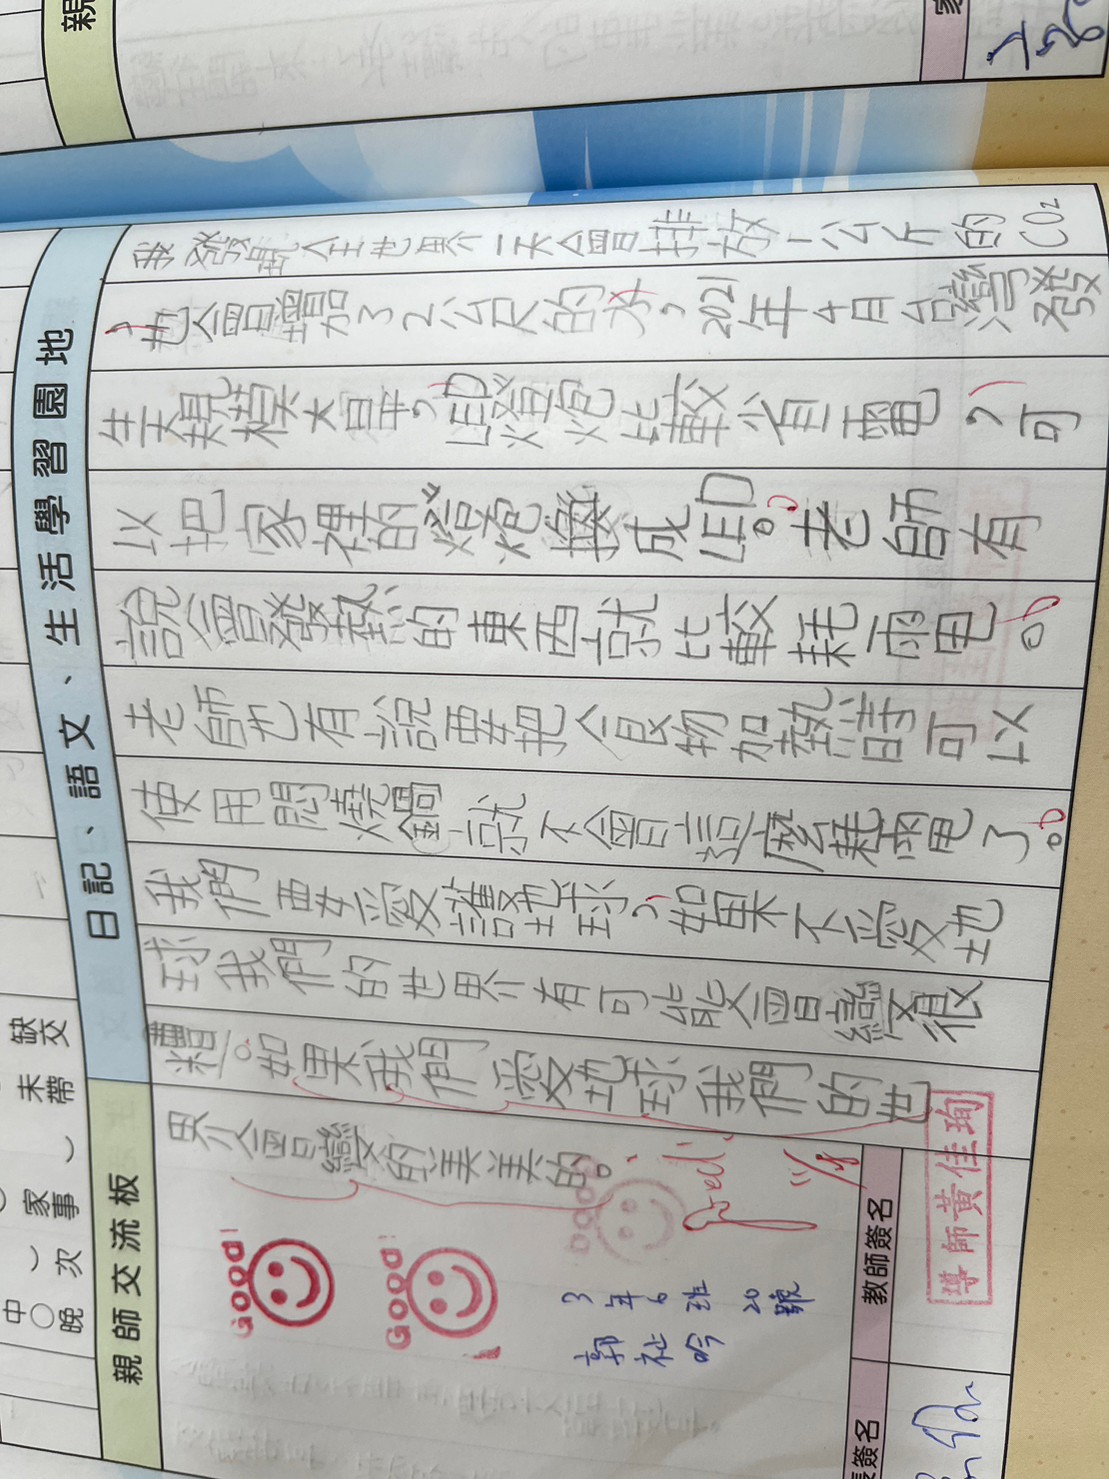 日記、語文、生活學習園地
我發現全世界一天會排放1公斤的CO₂
，也會增加了2公尺的水，2021年4月台灣發
生天規模大旱，LED燈泡比較省電，可
以把家裡的燈泡換成LED。老師有
說會發熱的東西就比較耗電。
老師也有說要把食物加熱時可以
使用悶燒鍋就不會這麼耗電了。
我們要愛護地球，如果不愛地
球我們的世界有可能會變很
糟糕。如果我們愛地球我們的世
界會變的美美的。
Good!
親師交流板
GOOD!
GOOD!
GOOD
3年6班20號
郭祉吟
教師簽名
導師黃佳珣
長簽名
缺交
未帶
家事
次
中
晚
親
家